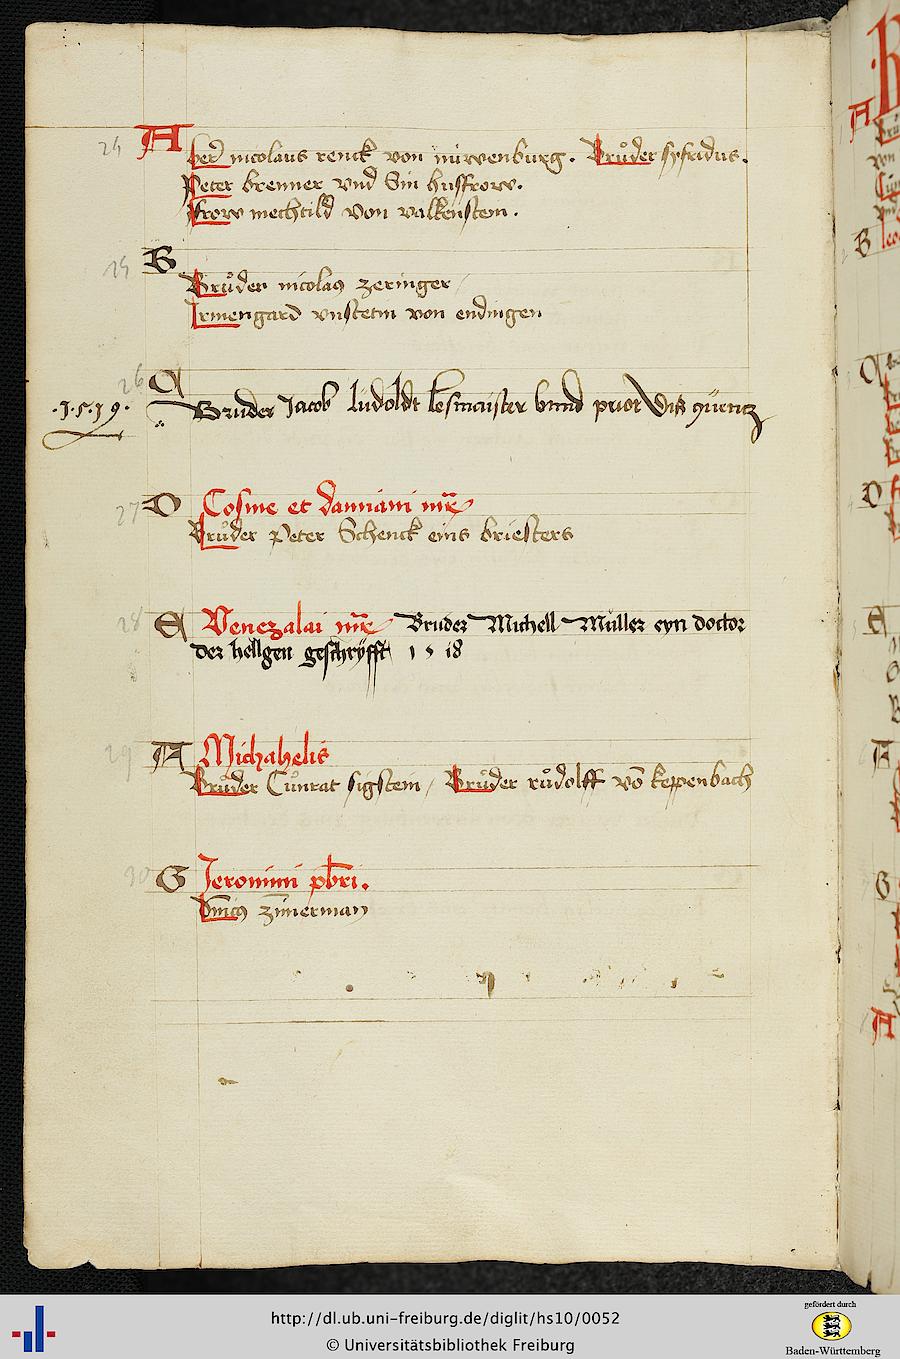 24 A
her nicolaus renck von nüwenburg. Brůder syfridus.
Peter brenner vnd Sin husfrow.
frow mechtild von valkenstein.
25 B
Brůder nicolaus zeringer
Irmengard vnstetin von endingen
26 C
.1.5.19. Bruder Jacob ludoldt lesmeister vnnd prior
27 D Cosme et damiani
Brůder Peter Schenck eins briesters
28 E Venezalai Bruder Michell Müller eyn doctor
der heligen geschryfft 1518
29 Michahelis
Brůder Cůnrat sigstein / Brůder růdolff vō keppenbach
30 G Jeronimi pbri.
zimerman
A
B
D
E
G
A
http://dl.ub.uni-freiburg.de/diglit/hs10/0052
© Universitätsbibliothek Freiburg
gefördert durch
Baden-Württemberg